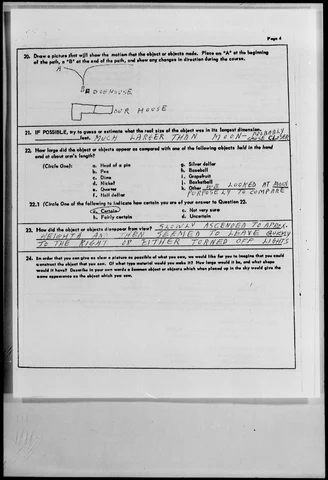 Page 4
20. Draw a picture that will show the motion that the object or objects made. Place an "A" at the beginning
of the path, a "B" at the end of the path, and show any changes in direction during the course.
A
B DOGHOUSE
OUR HOUSE
21. IF POSSIBLE, try to guess or estimate what the real size of the object was in its longest dimension.
feet. MUCH LARGER THAN MOON - PROBABLY
22. How large did the object or objects appear as compared with one of the following objects held in the hand
and at about arm's length?
(Circle One): a. Head of a pin g. Silver dollar
b. Pea h. Baseball
c. Dime i. Grapefruit
d. Nickel j. Basketball
e. Quarter k. Other LOOKED AT MOON
f. Half dollar PURPOSELY TO COMPARE
22.1 (Circle One of the following to indicate how certain you are of your answer to Question 22.
a. Certain c. Not very sure
b. Fairly certain d. Uncertain
23. How did the object or objects disappear from view? SLOWLY ASCENDED TO
AND THEN SEEMED TO LEAVE QUICKLY
TO THE RIGHT OR EITHER TURNED OFF LIGHTS
24. In order that you can give as clear a picture as possible of what you saw, we would like for you to imagine that you could
construct the object that you saw. Of what type material would you make it? How large would it be, and what shape
would it have? Describe in your own words a common object or objects which when placed up in the sky would give the
same appearance as the object which you saw.